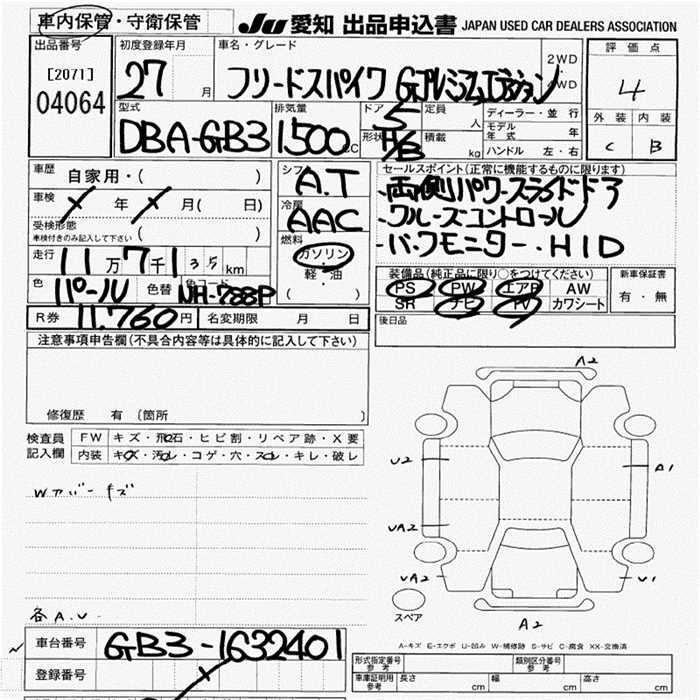 車内保管・守衛保管
JU 愛知 出品申込書 JAPAN USED CAR DEALERS ASSOCIATION
出品番号
[2071]
04064
初度登録年月
27 月
車名・グレード
フリードスパイク Gプレミアムエディション
2WD
・
4WD
評価点
4
外装 内装
C B
型式
DBA-GB3
排気量
1500 CC
ドア
5
形状
H/B
定員
人
積載
kg
ディーラー・並行
モデル年式 年
ハンドル 左・右
車歴
自家用・( )
車検
年 月( 日)
受検形態
車検付きのみ記入して下さい ( )
走行
11万7千135km
色
パール
色替
色コード
NH-788P
シフト
A.T
冷房
AAC
燃料
ガソリン
・
軽・油
( )
セールスポイント(正常に機能するものに限ります)
・両側パワースライドドア
・クルーズコントロール
・バックモニター・HID
装備品(純正品に限り○をつけてください)
PS PW エアB AW
SR ナビ TV カワシート
新車保証書
有・無
後日品
R券 11,760円
名変期限 月 日
注意事項申告欄(不具合内容等は具体的に記入して下さい)
修復歴 有 〔箇所 〕
検査員
記入欄
FW キズ・飛石・ヒビ割・リペア跡・X要
内装 キズ・汚レ・コゲ・穴・スレ・キレ・破レ
各A.U
A2
U2
A1
UA2
UA2
U1
スペア
A2
A-キズ E-エクボ U-凹み W-補修跡 S-サビ C-腐食 XX-交換済
車台番号
GB3-1632401
登録番号
形式指定番号
参考
類別区分番号
参考
車庫証明用
参考
長さ cm
幅 cm
高さ cm